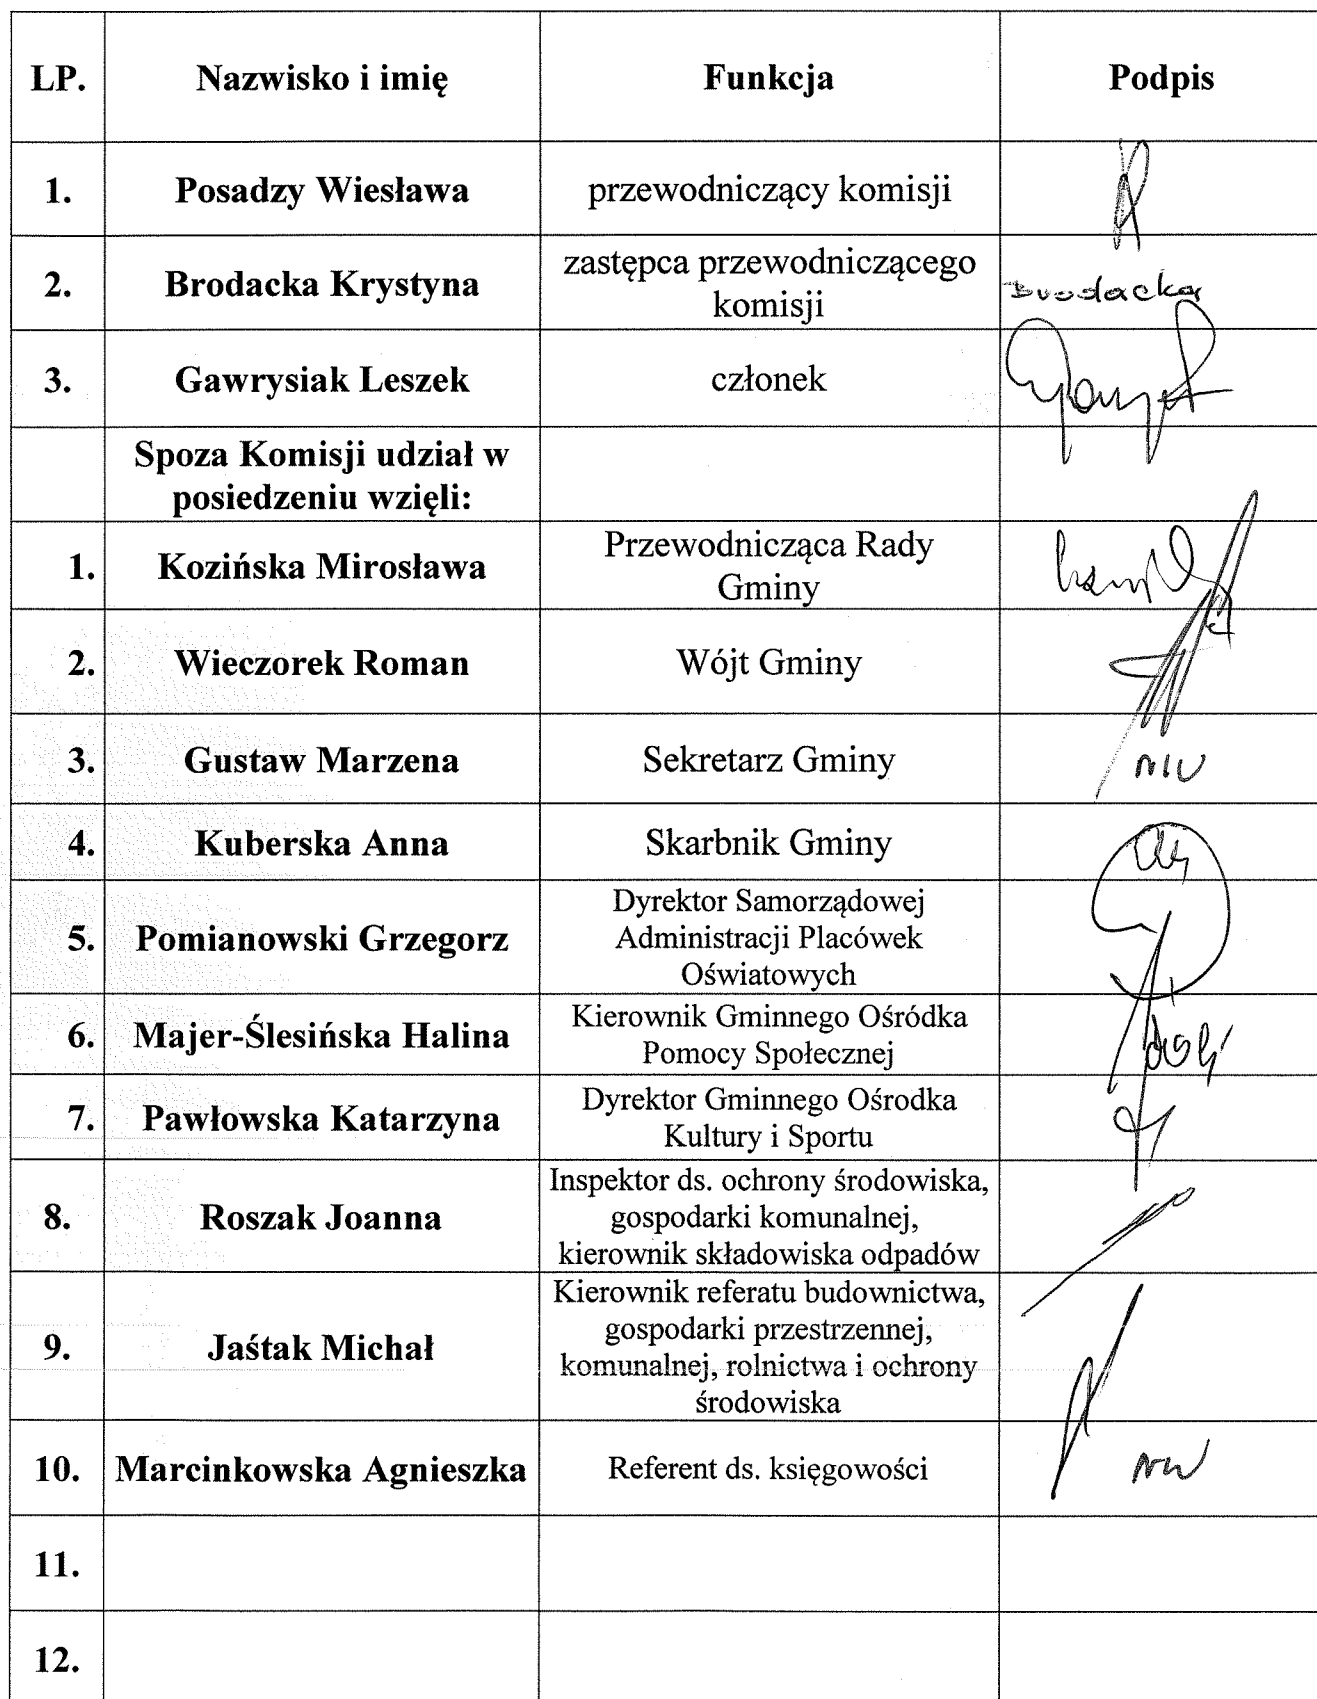 LP. Nazwisko i imię Funkcja Podpis
1. Posadzy Wiesława przewodniczący komisji
2. Brodacka Krystyna zastępca przewodniczącego
komisji
Brodacka
3. Gawrysiak Leszek członek
Spoza Komisji udział w
posiedzeniu wzięli:
1. Kozińska Mirosława Przewodnicząca Rady
Gminy
2. Wieczorek Roman Wójt Gminy
3. Gustaw Marzena Sekretarz Gminy
4. Kuberska Anna Skarbnik Gminy
5. Pomianowski Grzegorz Dyrektor Samorządowej
Administracji Placówek
Oświatowych
6. Majer-Ślesińska Halina Kierownik Gminnego Ośródka
Pomocy Społecznej
7. Pawłowska Katarzyna Dyrektor Gminnego Ośrodka
Kultury i Sportu
8. Roszak Joanna Inspektor ds. ochrony środowiska,
gospodarki komunalnej,
kierownik składowiska odpadów
9. Jaśtak Michał Kierownik referatu budownictwa,
gospodarki przestrzennej,
komunalnej, rolnictwa i ochrony
środowiska
10. Marcinkowska Agnieszka Referent ds. księgowości
11.
12.